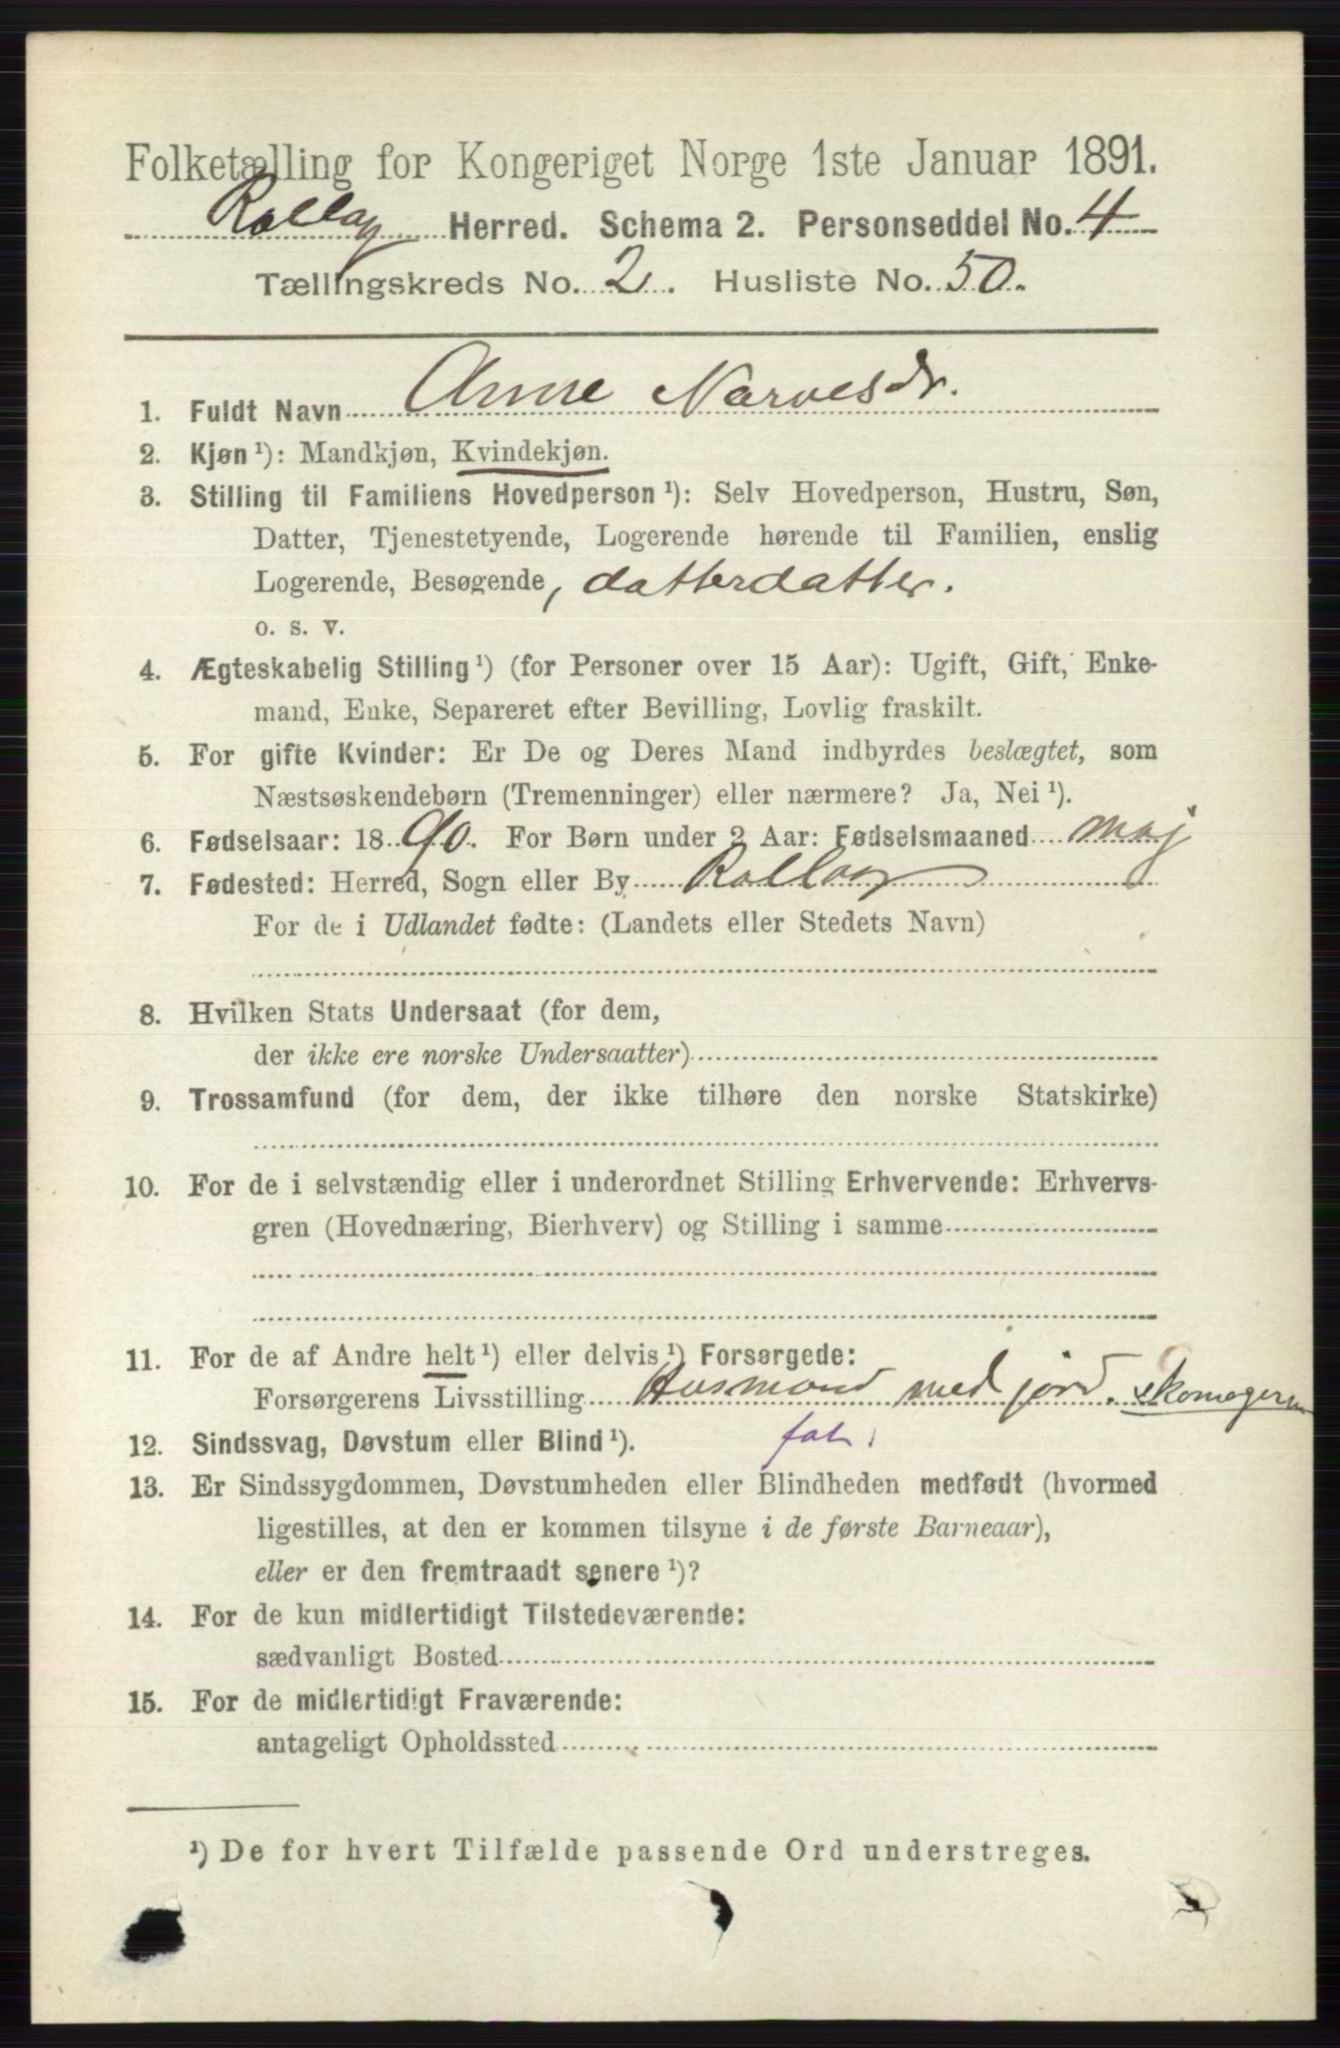 Folketælling for Kongeriget Norge 1ste Januar 1891.
Rollag Herred. Schema 2. Personseddel No. 4
Tællingskreds No. 2. Husliste No. 50.
1. Fuldt Navn Anne Narvesdr.
2. Kjøn ¹): Mandkjøn, Kvindekjøn.
3. Stilling til Familiens Hovedperson ¹): Selv Hovedperson, Hustru, Søn,
Datter, Tjenestetyende, Logerende hørende til Familien, enslig
Logerende, Besøgende, datterdatter.
o. s. v.
4. Ægteskabelig Stilling ¹) (for Personer over 15 Aar): Ugift, Gift, Enke-
mand, Enke, Separeret efter Bevilling, Lovlig fraskilt.
5. For gifte Kvinder: Er De og Deres Mand indbyrdes beslægtet, som
Næstsøskendebørn (Tremenninger) eller nærmere? Ja, Nei ¹).
6. Fødselsaar: 1890. For Børn under 2 Aar: Fødselsmaaned maj
7. Fødested: Herred, Sogn eller By Rollag
For de i Udlandet fødte: (Landets eller Stedets Navn)
8. Hvilken Stats Undersaat (for dem,
der ikke ere norske Undersaatter)
9. Trossamfund (for dem, der ikke tilhøre den norske Statskirke)
10. For de i selvstændig eller i underordnet Stilling Erhvervende: Erhvervs-
gren (Hovednæring, Bierhverv) og Stilling i samme
11. For de af Andre helt ¹) eller delvis ¹) Forsørgede:
Forsørgerens Livsstilling Husmand med jord. skomager
12. Sindssvag, Døvstum eller Blind ¹).
13. Er Sindssygdommen, Døvstumheden eller Blindheden medfødt (hvormed
ligestilles, at den er kommen tilsyne i de første Barneaar),
eller er den fremtraadt senere ¹)?
14. For de kun midlertidigt Tilstedeværende:
sædvanligt Bosted
15. For de midlertidigt Fraværende:
antageligt Opholdssted
¹) De for hvert Tilfælde passende Ord understreges.